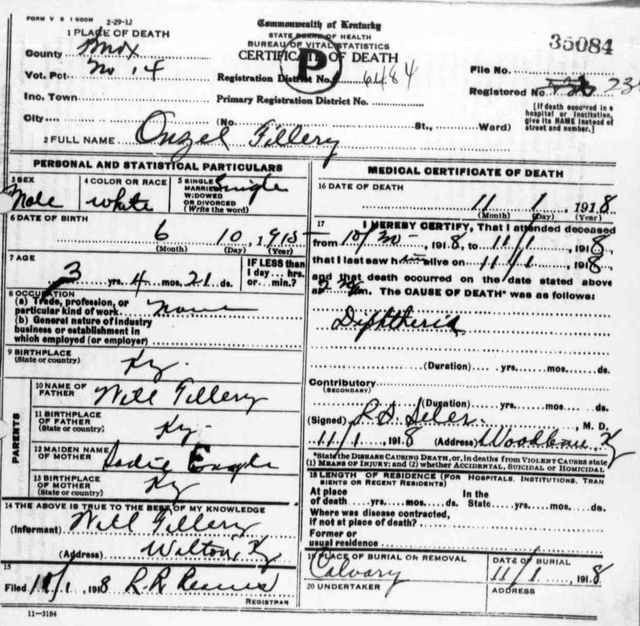 FORM V S 1 500M 2-29-12
Commonwealth of Kentucky
STATE BOARD OF HEALTH
BUREAU OF VITAL STATISTICS
CERTIFICATE OF DEATH
P
35084
1 PLACE OF DEATH
County Knox
Vot. Pct. No. 14
Registration District No. 6484
File No.
Inc. Town
Primary Registration District No.
Registered No.
City (No. St., Ward)
[If death occurred in a hospital or institution, give its NAME instead of street and number.]
2 FULL NAME Onzel Tillery
PERSONAL AND STATISTICAL PARTICULARS
3 SEX Male
4 COLOR OR RACE white
5 SINGLE MARRIED WIDOWED OR DIVORCED (Write the word) Single
6 DATE OF BIRTH
6 10, 1915
(Month) (Day) (Year)
7 AGE
3 yrs. 4 mos. 21 ds.
IF LESS than 1 day... hrs. or... min.?
8 OCCUPATION
(a) Trade, profession, or particular kind of work none
(b) General nature of industry business or establishment in which employed (or employer)
9 BIRTHPLACE (State or country) Ky.
PARENTS
10 NAME OF FATHER Will Tillery
11 BIRTHPLACE OF FATHER (State or country) Ky.
12 MAIDEN NAME OF MOTHER Engle
13 BIRTHPLACE OF MOTHER (State or country) Ky
14 THE ABOVE IS TRUE TO THE BEST OF MY KNOWLEDGE
(Informant) Will Tillery
(Address) Wilton, Ky
15
Filed 11/1 1918 R.R.
REGISTRAR
11-3184
MEDICAL CERTIFICATE OF DEATH
16 DATE OF DEATH
11 1 1918
(Month) (Day) (Year)
17 I HEREBY CERTIFY, That I attended deceased
from 10/30, 1918, to 11/1, 1918,
that I last saw him alive on 11/1, 1918,
and that death occurred on the date stated above
at m. The CAUSE OF DEATH* was as follows:
Diphtheria
(Duration) yrs. mos. ds.
Contributory (SECONDARY)
(Duration) yrs. mos. ds.
(Signed) M. D.
11/1, 1918 (Address) Woodbine, Ky
*State the DISEASE CAUSING DEATH, or, in deaths from VIOLENT CAUSES state
(1) MEANS OF INJURY; and (2) whether ACCIDENTAL, SUICIDAL OR HOMICIDAL
18 LENGTH OF RESIDENCE (FOR HOSPITALS, INSTITUTIONS, TRANSIENTS OR RECENT RESIDENTS)
At place of death yrs. mos. ds. In the State yrs. mos. ds.
Where was disease contracted, if not at place of death?
Former or usual residence
19 PLACE OF BURIAL OR REMOVAL Calvary
DATE OF BURIAL 11/1, 1918
20 UNDERTAKER
ADDRESS